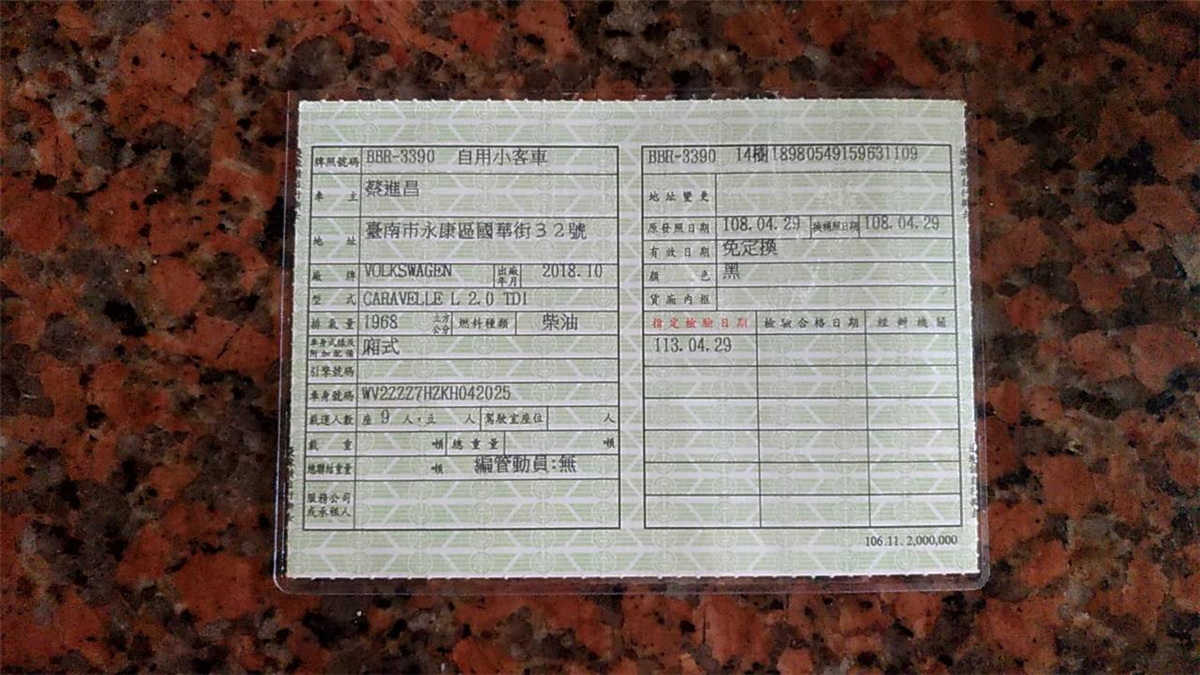 牌照號碼 BBR-3390 自用小客車
車主 蔡進昌
地址 臺南市永康區國華街32號
廠牌 VOLKSWAGEN 出廠年月 2018.10
型式 CARAVELLE L 2.0 TDI
排氣量 1968 立方公分 燃料種類 柴油
車身式樣及附加配備 廂式
引擎號碼
車身號碼 WV2ZZZ7HZKH042025
載運人數 座 9 人,立 人 駕駛室座位 人
載重 噸 總重量 噸
總聯結重量 噸 編管動員:無
服務公司或承租人
BBR-3390 14樹18980549159631109
地址變更
原發照日期 108.04.29 換補照日期 108.04.29
有效日期 免定換
顏色 黑
貨廂內框
指定檢驗日期 檢驗合格日期 經辦機關
113.04.29
106.11. 2,000,000